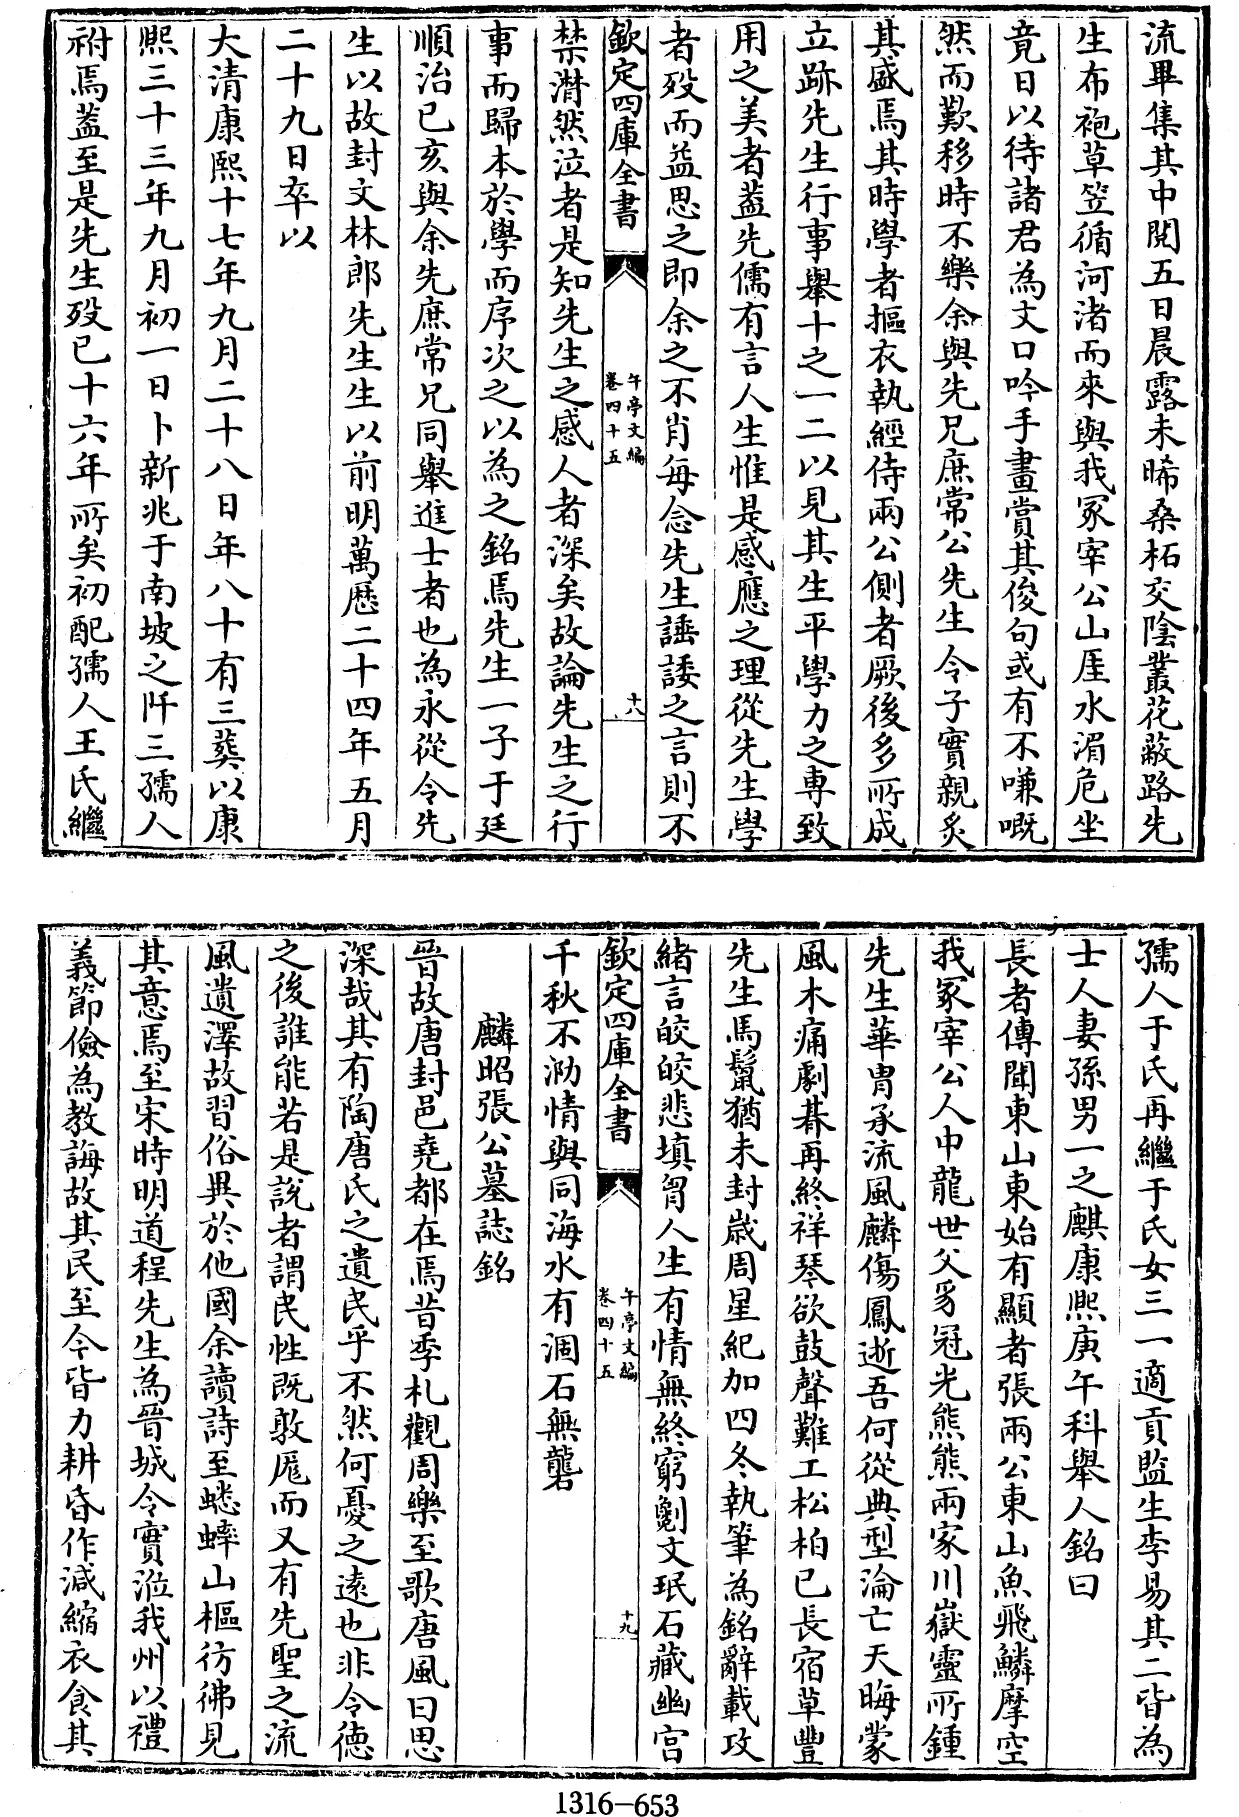 流畢集其中閱五日晨露未晞桑柘交陰叢花蔽路先
生布袍草笠循河渚而來與我冢宰公山厓水湄危坐
竟日以待諸君為文口吟手畫賞其俊句或有不嗛嘅
然而歎移時不樂余與先兄庶常公先生令子實親炙
其盛焉其時學者摳衣執經侍兩公側者厥後多所成
立跡先生行事舉十之一二以見其生平學力之專致
用之美者蓋先儒有言人生惟是感應之理從先生學
者歿而益思之即余之不肖每念先生諈諉之言則不
欽定四庫全書
午亭文編
卷四十五
十八
禁潸然泣者是知先生之感人者深矣故論先生之行
事而歸本於學而序次之以為之銘焉先生一子于廷
順治己亥與余先庶常兄同舉進士者也為永從令先
生以故封文林郎先生生以前明萬歷二十四年五月
二十九日卒以
大清康熙十七年九月二十八日年八十有三葬以康
熙三十三年九月初一日卜新兆于南坡之阡三孺人
祔焉蓋至是先生歿已十六年所矣初配孺人王氏繼
孺人于氏再繼于氏女三一適貢監生李易其二皆為
士人妻孫男一之麒康熙庚午科舉人銘曰
長者傳聞東山東始有顯者張兩公東山魚飛鱗摩空
我冢宰公人中龍世父豸冠光熊熊兩家川嶽靈所鍾
先生華胄承流風麟傷鳳逝吾何從典型淪亡天晦蒙
風木痛劇朞再終祥琴欲鼓聲難工松柏已長宿草豐
先生馬鬣猶未封歲周星紀加四冬執筆為銘辭載攻
緒言皎皎悲填胷人生有情無終窮劖文珉石藏幽宫
欽定四庫全書
午亭文編
卷四十五
十九
千秋不泐情與同海水有涸石無礱
麟昭張公墓誌銘
晉故唐封邑堯都在焉昔季札觀周樂至歌唐風曰思
深哉其有陶唐氏之遺民乎不然何憂之遠也非令德
之後誰能若是說者謂民性既敦厖而又有先聖之流
風遺澤故習俗異於他國余讀詩至蟋蟀山樞彷彿見
其意焉至宋時明道程先生為晉城令實涖我州以禮
義節儉為教誨故其民至今皆力耕昏作減縮衣食其
1316-653